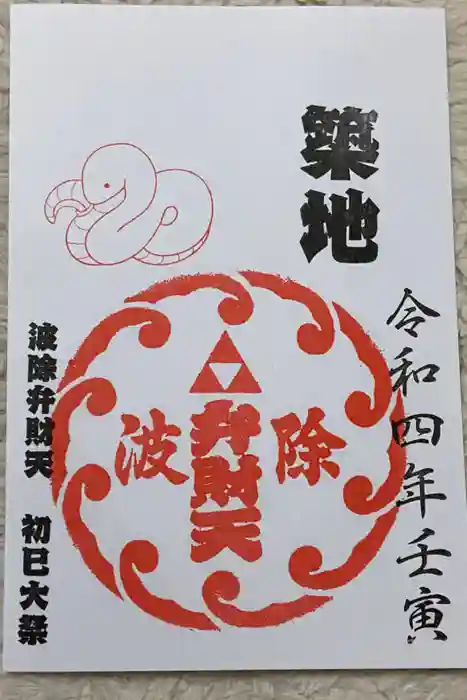 築地
令和四年壬寅
波
弁財天
除
波除弁財天 初巳大祭